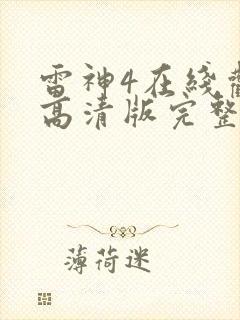 雷神4在线
高清版完整
薄荷迷